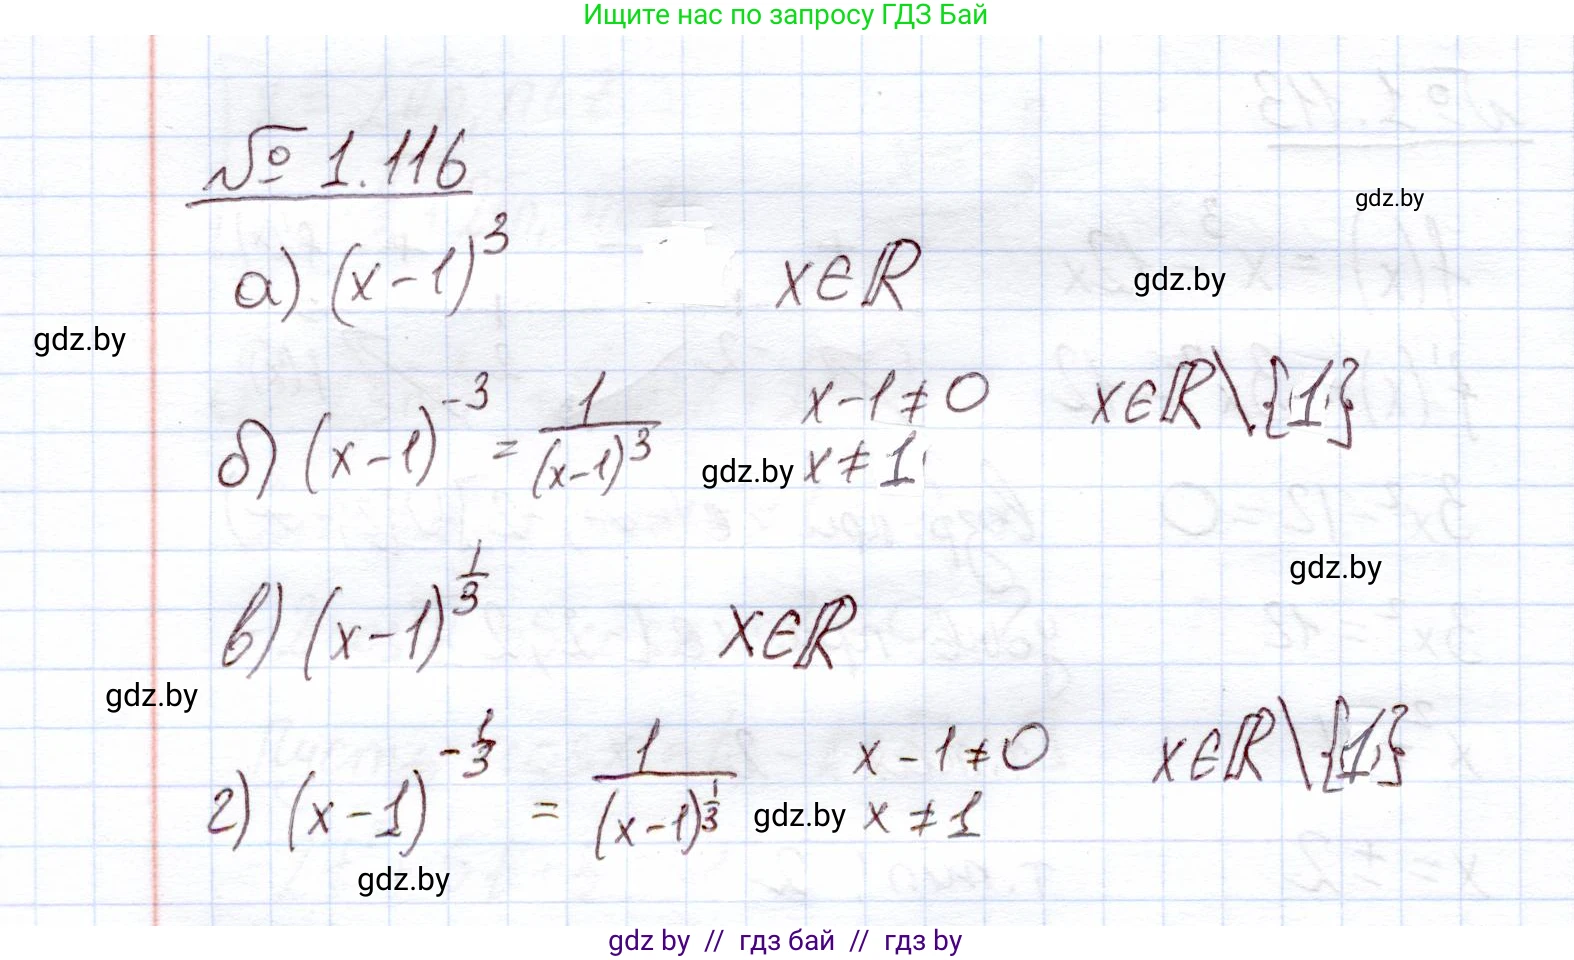 Ищите нас по запросу ГДЗ Бай
№ 1.116
gdz.by
а) (x-1)³ x∈ℝ
gdz.by
gdz.by
б) (x-1)⁻³ = 1/(x-1)³ x-1≠0 x∈ℝ\{1}
gdz.by x≠1
gdz.by
в) (x-1)^(1/3) x∈ℝ
gdz.by
г) (x-1)^(-1/3) = 1/(x-1)^(1/3) x-1≠0 x∈ℝ\{1}
gdz.by x≠1
gdz.by
gdz by // гдз бай // гдз by